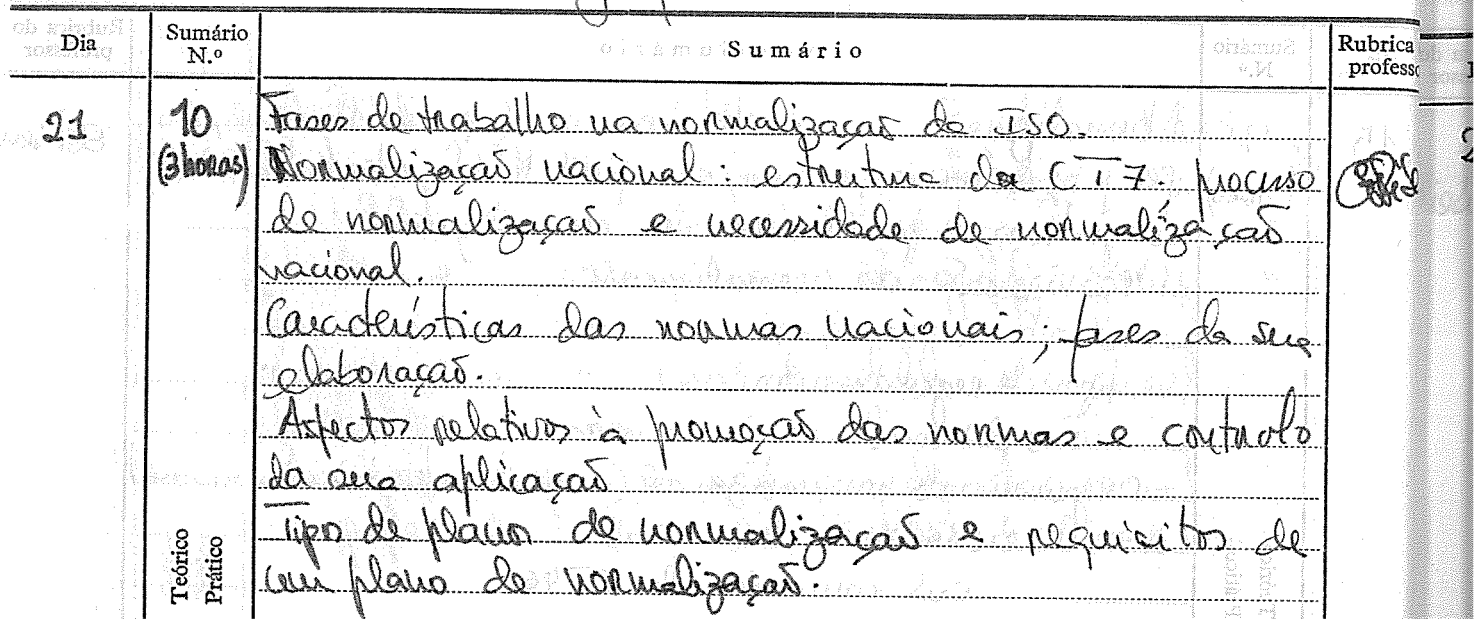 Dia Sumário N.º Sumário Rubrica professo
21 10 Fases de trabalho na normalização da ISO.
(3 horas) Normalização nacional: estrutura da CT7; processo
de normalização e necessidade de normalização
nacional.
Características das normas nacionais; fases da sua
elaboração.
Aspectos relativos à promoção das normas e controlo
da sua aplicação
Tipo de planos de normalização e requisitos de
um plano de normalização.
Teórico
Prático